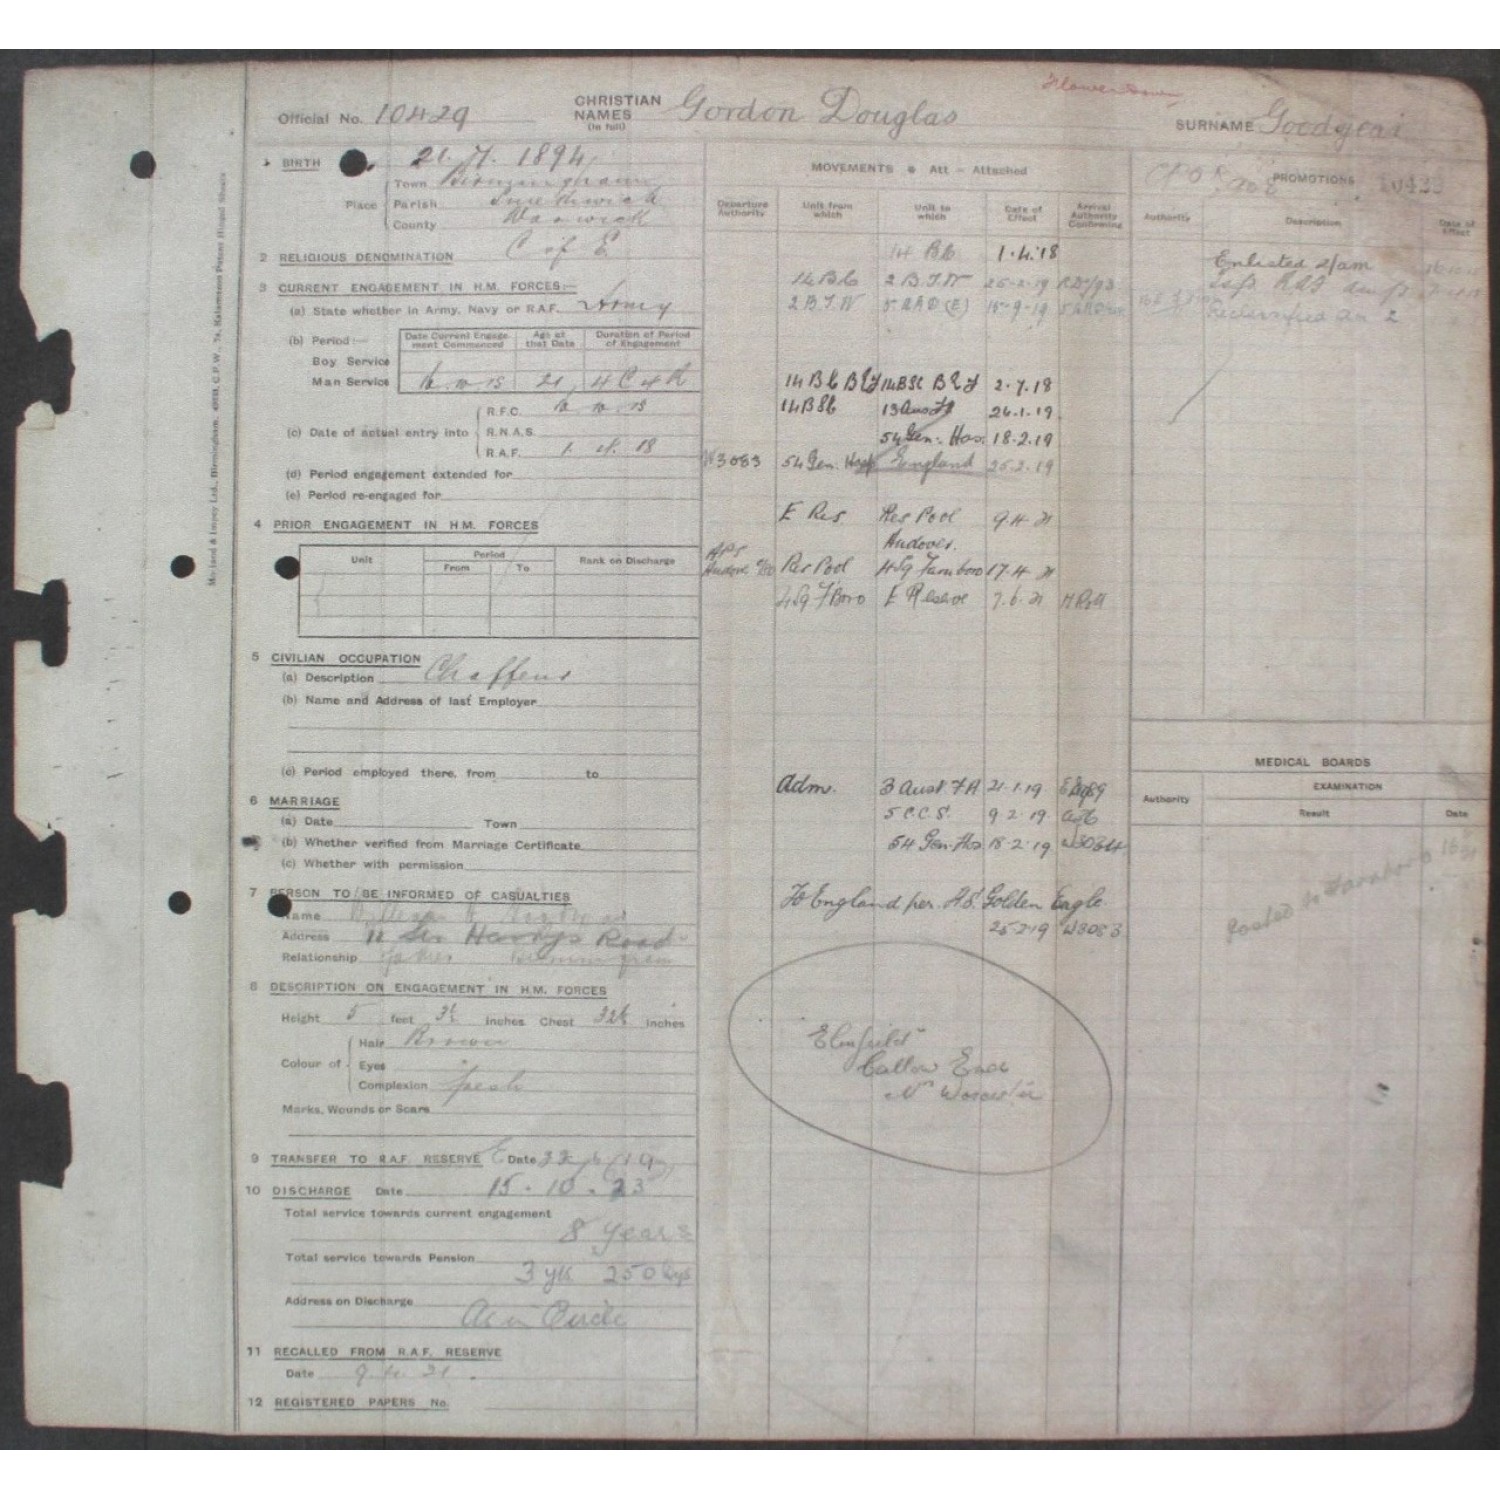 Flowerdown
Official No. 10429
CHRISTIAN NAMES (in full) Gordon Douglas
SURNAME Goodyear
1 BIRTH 21. 7. 1894
Place Town Birmingham
Parish Smethwick
County Warwick
2 RELIGIOUS DENOMINATION C of E
3 CURRENT ENGAGEMENT IN H.M. FORCES:—
(a) State whether in Army, Navy or R.A.F. Army
(b) Period:—
Date Current Engagement Commenced Age at that Date Duration of Period of Engagement
Boy Service
Man Service 16.10.15 21 4 C 4 R
(c) Date of actual entry into R.F.C. 16.10.15
R.N.A.S.
R.A.F. 1. 4. 18
(d) Period engagement extended for
(e) Period re-engaged for
4 PRIOR ENGAGEMENT IN H.M. FORCES
Unit Period Rank on Discharge
From To
5 CIVILIAN OCCUPATION
(a) Description Chaffeur
(b) Name and Address of last Employer
(c) Period employed there, from to
6 MARRIAGE
(a) Date Town
(b) Whether verified from Marriage Certificate
(c) Whether with permission
7 PERSON TO BE INFORMED OF CASUALTIES
Name William
Address 11 Sir Harrys Road
Relationship Father Birmingham
8 DESCRIPTION ON ENGAGEMENT IN H.M. FORCES
Height 5 feet 3½ inches Chest 32½ inches
Colour of Hair Brown
Eyes
Complexion Fresh
Marks, Wounds or Scars
9 TRANSFER TO R.A.F. RESERVE E Date
10 DISCHARGE Date 15-10-23
Total service towards current engagement
8 years
Total service towards Pension
3 yrs 250 dys
Address on Discharge
As in Circle
11 RECALLED FROM R.A.F. RESERVE
Date 9.4.21.
12 REGISTERED PAPERS No.
MOVEMENTS Att — Attached
Departure Authority Unit from which Unit to which Date of Effect Arrival Authority Confirming
14 B.C 1.4.18
14 B.C 2 B.T.W 25-2-19
2 B.T.W 5 RAD (E) 15-9-19
14 B C B E F 14 BSC B E F 2.7.18
14 B SC 13 Aus FA 26.1.19
54 Gen. Hos. 18.2.19
W3083 54 Gen. Hosp England 25.2.19
E Res Res Pool Andover. 9.4.21
APS Andover Res Pool 4 Sq Farnboro 17.4.21
4 Sq F'Boro E Reserve 7.6.21
Adm. 3 Aust. F A 21.1.19
5 C.C.S. 9.2.19
54 Gen. Hos 18.2.19 W3034
To England per. A.S. Golden Eagle
25.2.19 W3083
Elmfield
Callow End
Nr Worcester
PROMOTIONS 10429
Authority Description Date of Effect
Enlisted 2/am
Reclassified Am 2
MEDICAL BOARDS
Authority EXAMINATION
Result Date
Posted to Farnboro